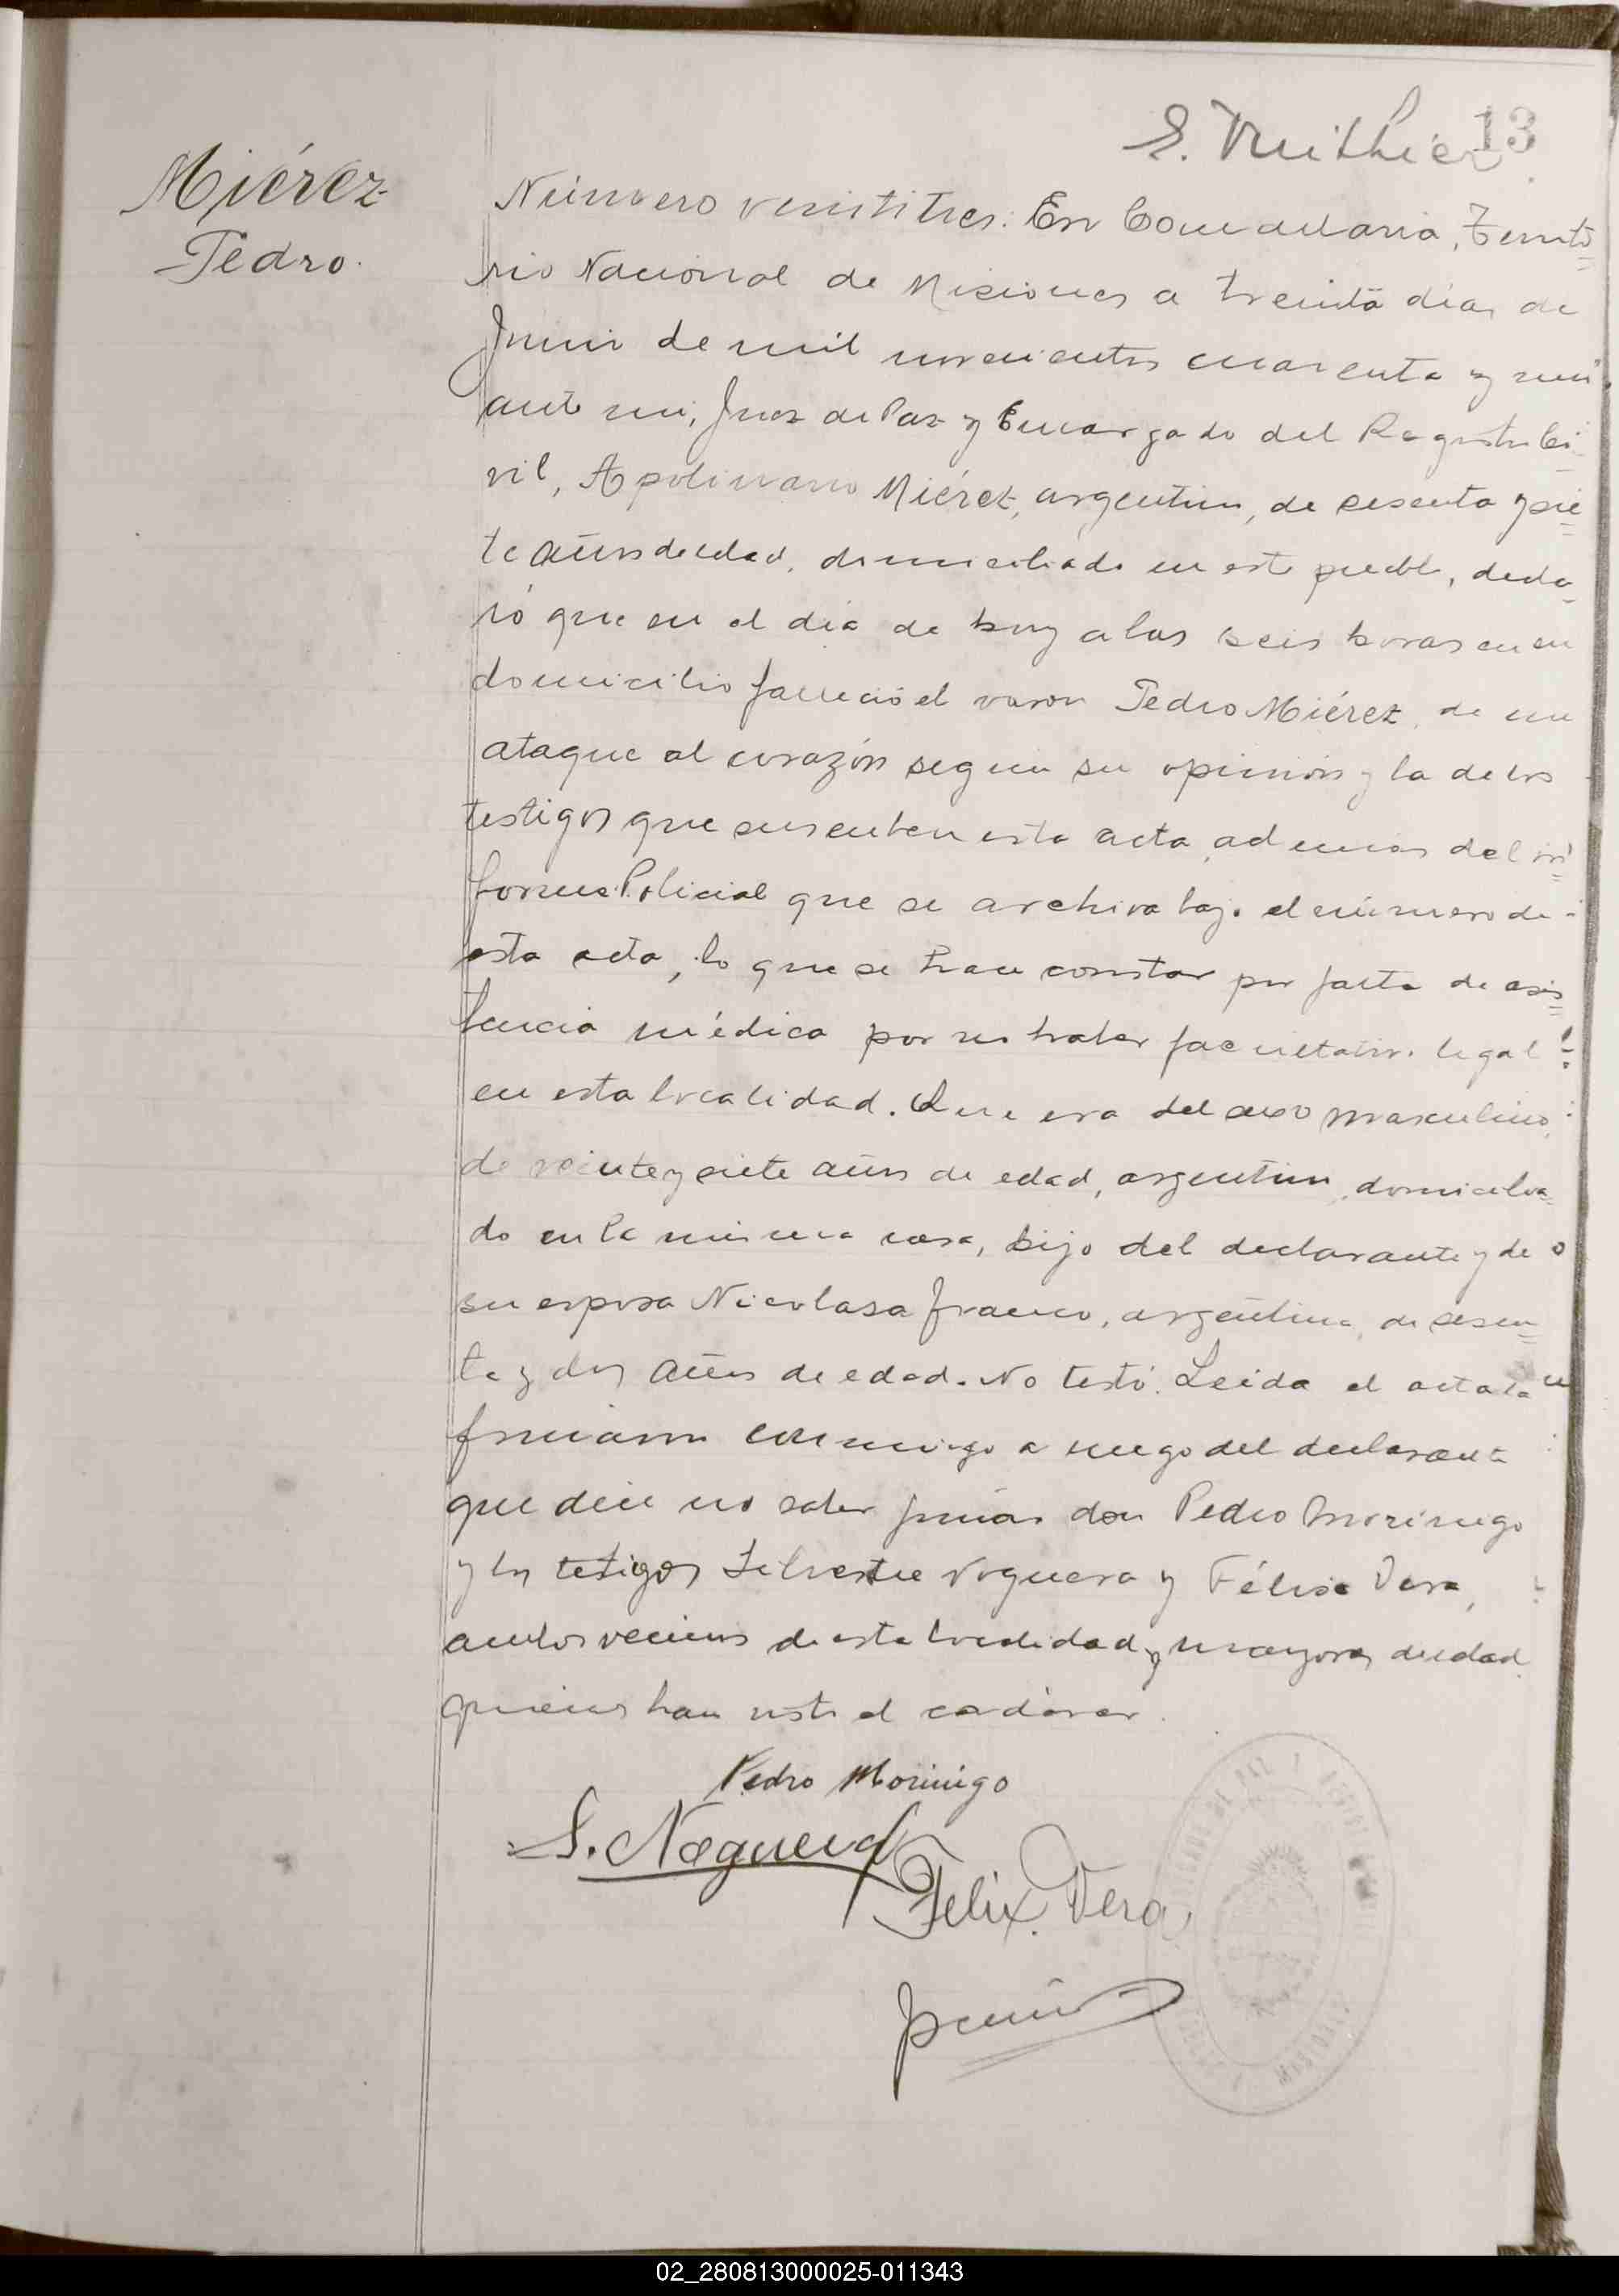 13
Miérez
Pedro.
Número veintitres: En Candelaria, Territo=
rio Nacional de Misiones a treinta dias de
Junio de mil novecientos cuarenta y
ante mi, Juez de Paz y Encargado del Registro Ci=
vil, Apolinario Miérez, argentino, de sesenta y sie=
te años de edad, domiciliado en este pueblo, decla=
ró que en el dia de hoy a las seis horas en su
domicilio falleció el varon Pedro Miérez, de un
ataque al corazón segun su opinión y la de los
testigos que suscriben esta acta, ademas del in=
forme Policial que se archiva bajo el número de
esta acta, lo que se hace constar por falta de asis=
tencia médica por no haber facultativo legal
en esta localidad. Que era del sexo masculino,
de veinte y siete años de edad, argentino, domicilia=
do en la misma casa, hijo del declarante y de
su esposa Nicolasa Franco, argentina, de sesen=
ta y dos años de edad. No testó. Leida el acta la
firmaron conmigo a ruego del declarante
que dice no saber firmar don Pedro Morinigo
y los testigos Silvestre Noguera y Félix Vera,
ambos vecinos de esta localidad y mayores de edad
quienes han visto el cadáver.
Pedro Morinigo
S. Noguera
Felix Vera
02_280813000025-011343